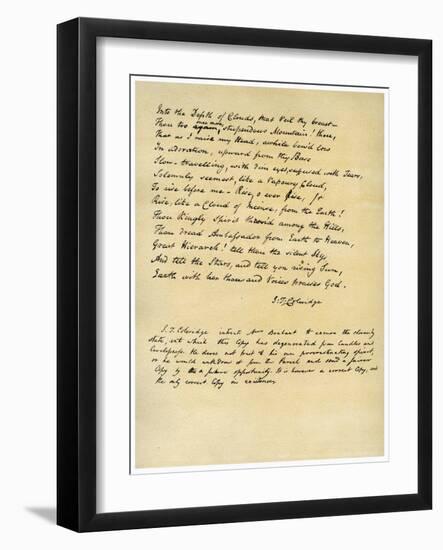 Into the Depth of Clouds, that veil thy breast—
Thou too again, stupendous Mountain! thou,
That as I raise my Head, awhile bow'd low
In adoration, upward from thy Base
Slow-travelling, with dim eyes suffused with Tears,
Solemnly seemest, like a Vapoury Cloud,
To rise before me—Rise, o ever Rise,
Rise, like a Cloud of Incense, from the Earth!
Thou Kingly Spirit thron'd among the Hills,
Thou dread Ambassador from Earth to Heaven,
Great Hierarch! tell thou the silent Sky,
And tell the Stars, and tell yon rising Sun,
Earth with her thousand Voices praises God.
S. T. Coleridge
S. T. Coleridge intreats Mrs to excuse the slovenly
state, into which this Copy has degenerated from Candles and
He dares not trust to his own procrastinating spirit,
or he would withdraw it from the Parcel and send a fairer
Copy by a future opportunity. It is however a correct Copy, and
the only correct Copy in existence